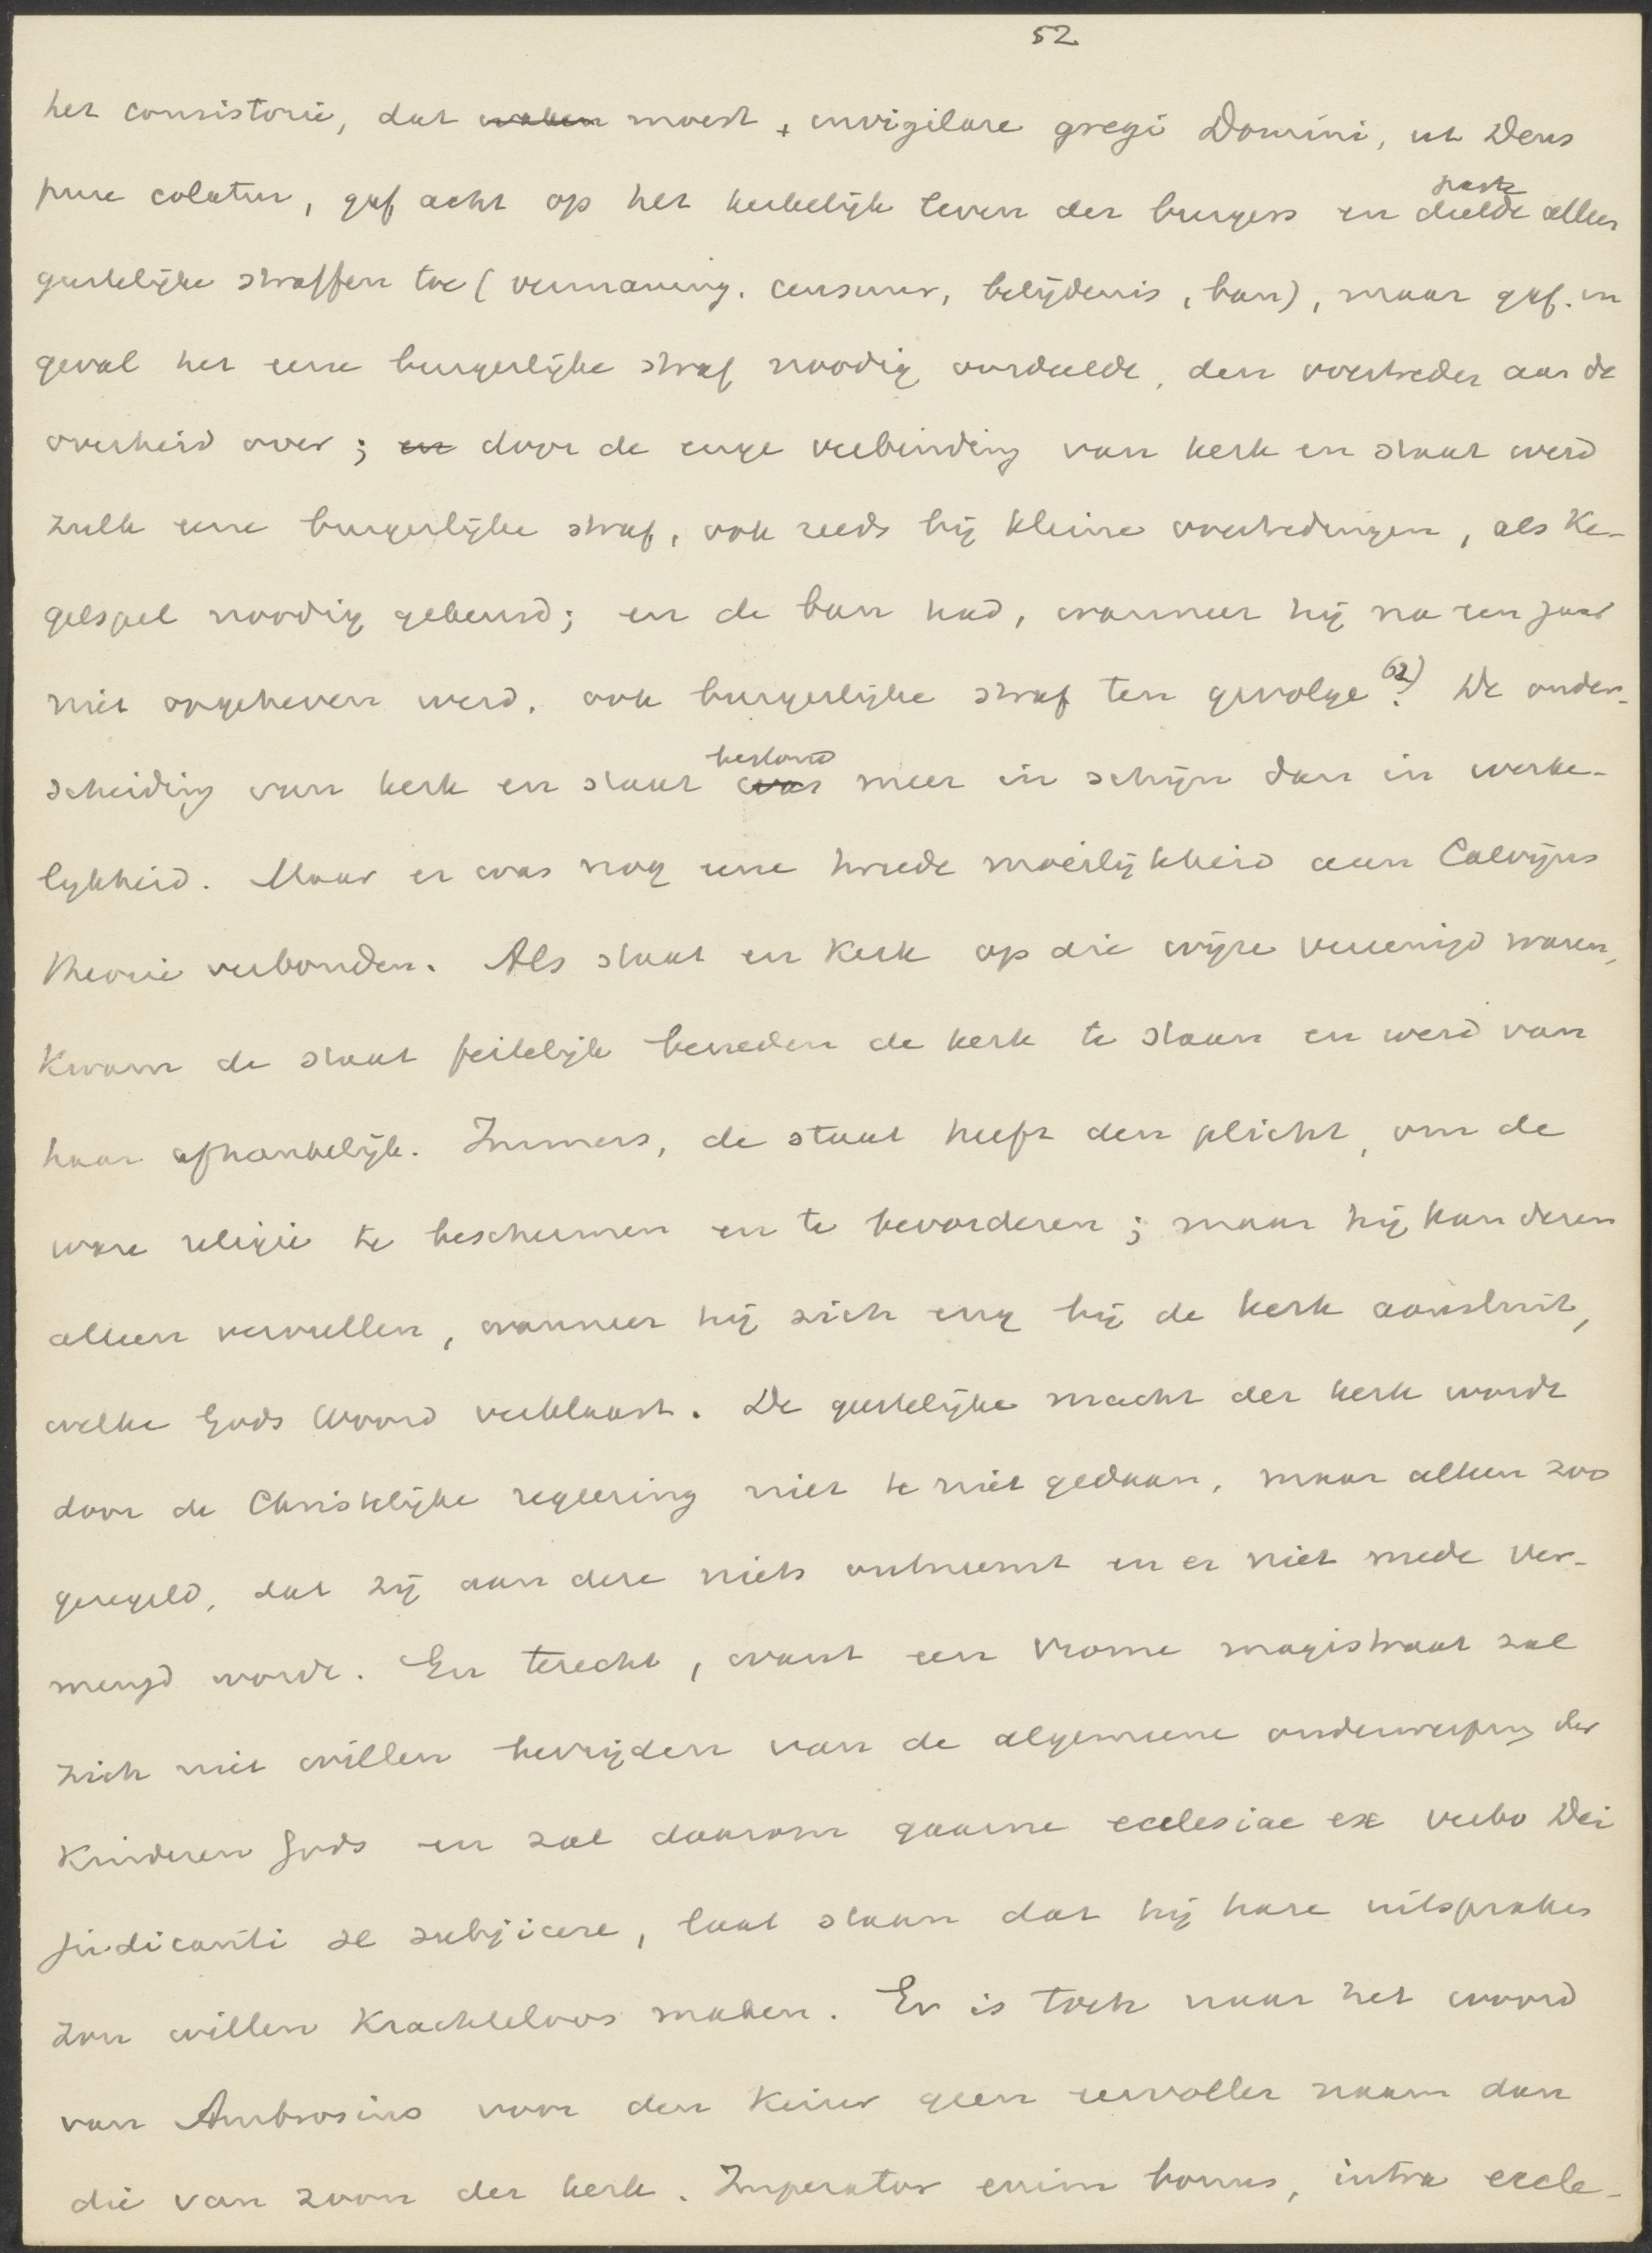 52
het consistorie, dat waken moest + invigilare gregi Domini, ut Deus
pure colatur, gaf acht op het kerkelijk leven der burgers en deelde alleen
geestelijke straffen toe (vermaning, censuur, belijdenis, ban), maar gaf, in
geval het eene burgerlijke straf noodig oordeelde, den overtreder aan de
overheid over; en door de enge verbinding van kerk en staat werd
zulk eene burgerlijke straf, ook reeds bij kleine overtredingen, als Ke-
gelspel noodig gekeurd; en de ban had, wanneer hij na een jaar
niet opgeheven werd, ook burgerlijke straf ten gevolge 62). De onder-
scheiding van kerk en staat was bestond meer in schijn dan in werke-
lykheid. Maar er was nog eene tweede moeilijkheid aan Calvijns
theorie verbonden. Als staat en Kerk op die wijze vereenigd waren,
Kwam de staat feitelijk beneden de kerk te staan en werd van
haar afhankelijk. Immers, de staat heeft den plicht, om de
ware religie te beschermen en te bevorderen; maar hij kan dezen
alleen vervullen, wanneer hij zich eng bij de kerk aansluit,
welke Gods Woord verklaart. De geestelijke macht der kerk wordt
door de Christelijke regeering niet te niet gedaan, maar alleen zoo
geregeld, dat zij aan deze niets ontneemt en er niet mede ver-
mengd wordt. En terecht, want een vrome magistraat zal
zich niet willen bevrijden van de algemeene onderwerping der
Kinderen Gods en zal daarom gaarne ecclesiae ex verbo Dei
judicanti se subjicere, laat staan dat hij hare uitspraken
zou willen Krachteloos maken. Er is toch naar het woord
van Ambrosius voor den Keizer geen eervoller naam dan
die van zoon der kerk. Imperator enim bonus, intra eccle-